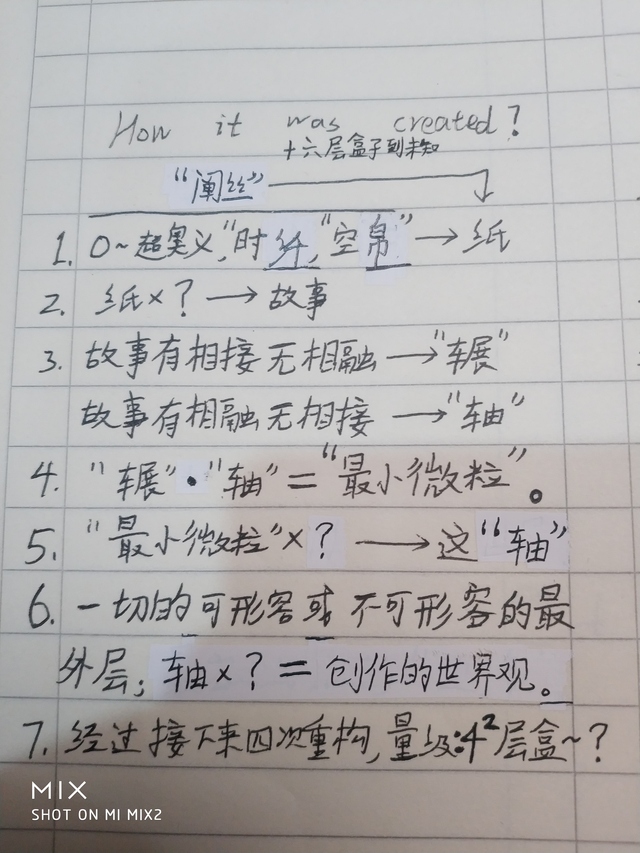 How it was created?
+六层盒子到未知
“阐丝”
1. 0~超奥义,“时纤,“空帛”→纸
2. 纸×?→故事
3. 故事有相接无相融→“辗”
故事有相融无相接→“轴”
4. “辗”·“轴”=“最小微粒”。
5. “最小微粒”×?→这“轴”
6. 一切的可形容或不可形容的最
外层;轴×?=创作的世界观。
7. 经过接下来四次重构,量级:4²层盒~?
MIX
SHOT ON MI MIX2